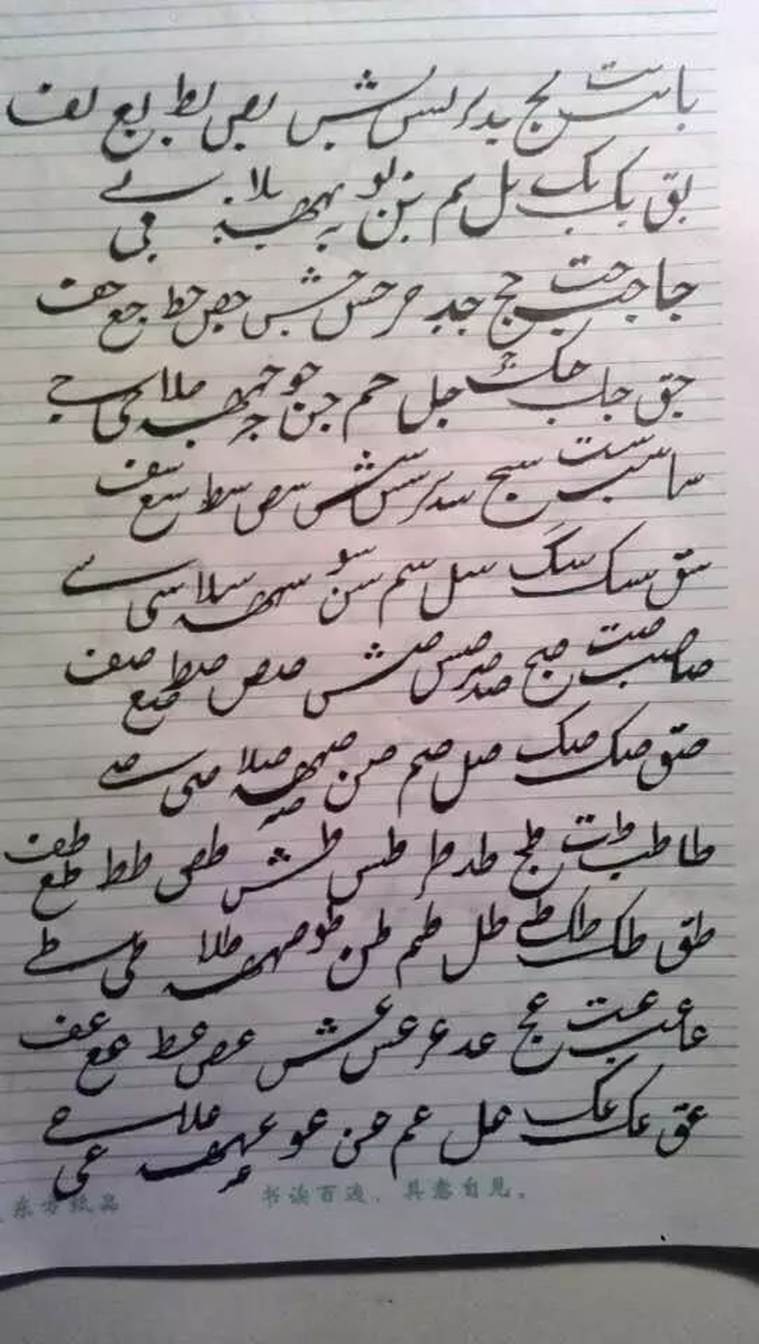 با بب بت بج بد بر بس بس بش بص بط بع بف
بق بک بک بل بم بن بو بہ بہفبہ بلا بی بے
جا جب جت جج جد جر جس جش جص جط جع جف
جق جاب جک جل جم جن جو جہ جمہفہ جلا جی جے
سا سب ست سج سد سر سس سش سص سط سع سف
سق سک سک سل سم سن سو سہفہ سلا سی سے
صا صب صت صج صد صر صس صش صص صط صع صف
صق صک صک صل صم صن صہفہ صہ صلا صی صے
طا طب طت طج طد طر طس طش طص طط طع طف
طق طک طک طل طم طن طو طہفہ طلا طی طے
عا عب عت عج عد عر عس عش عص عط عع عف
عق عک عک عل عم عن عو عہفہ عہ علا عی عے
东方纸品 书读百遍，其意自见。